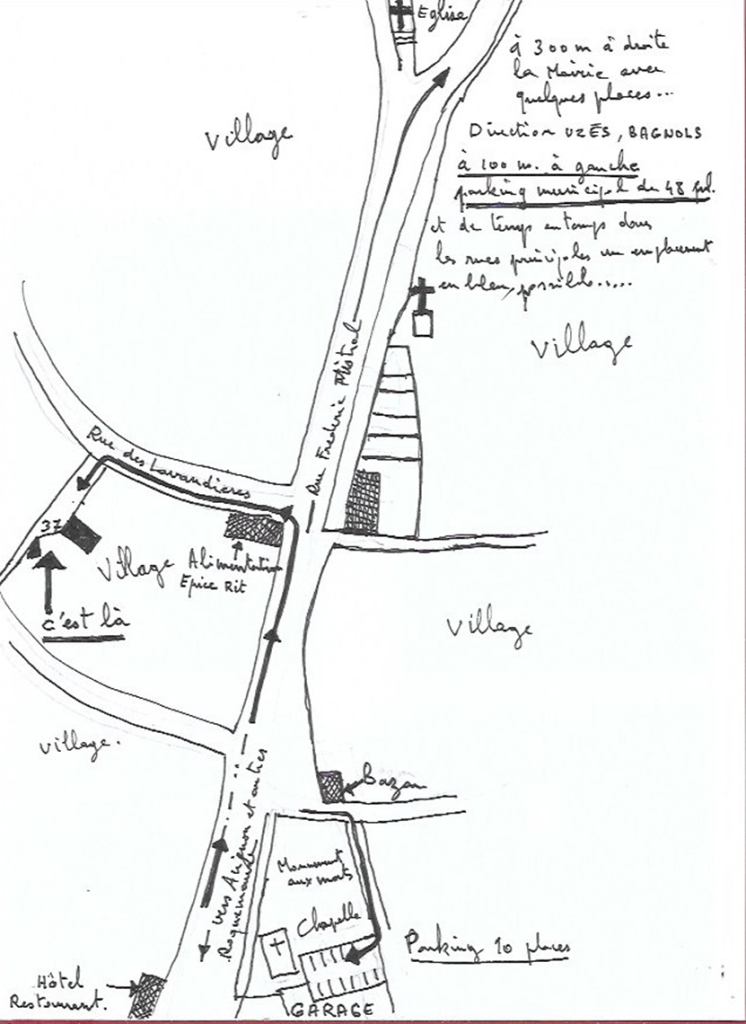 Eglise
à 300 m à droite
la Mairie avec
quelques places...
Direction UZÈS, BAGNOLS
à 100 m. à gauche
parking municipal de 48 pl.
et de temps en temps dans
les rues principales un emplacement
en bleu, possible.....
Village
Village
Rue Frederic Mistral
Rue des Lavandieres
37
Village
Alimentation
Epice Rit
c'est là
Village
Village.
Bazar
vers Avignon et autres
Roquemaure
Monument
aux morts
Chapelle
Parking 10 places
Hôtel
Restaurant.
GARAGE